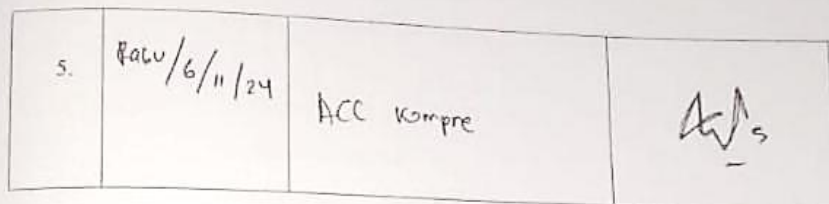 5. Rabu/6/11/24 ACC Kompre